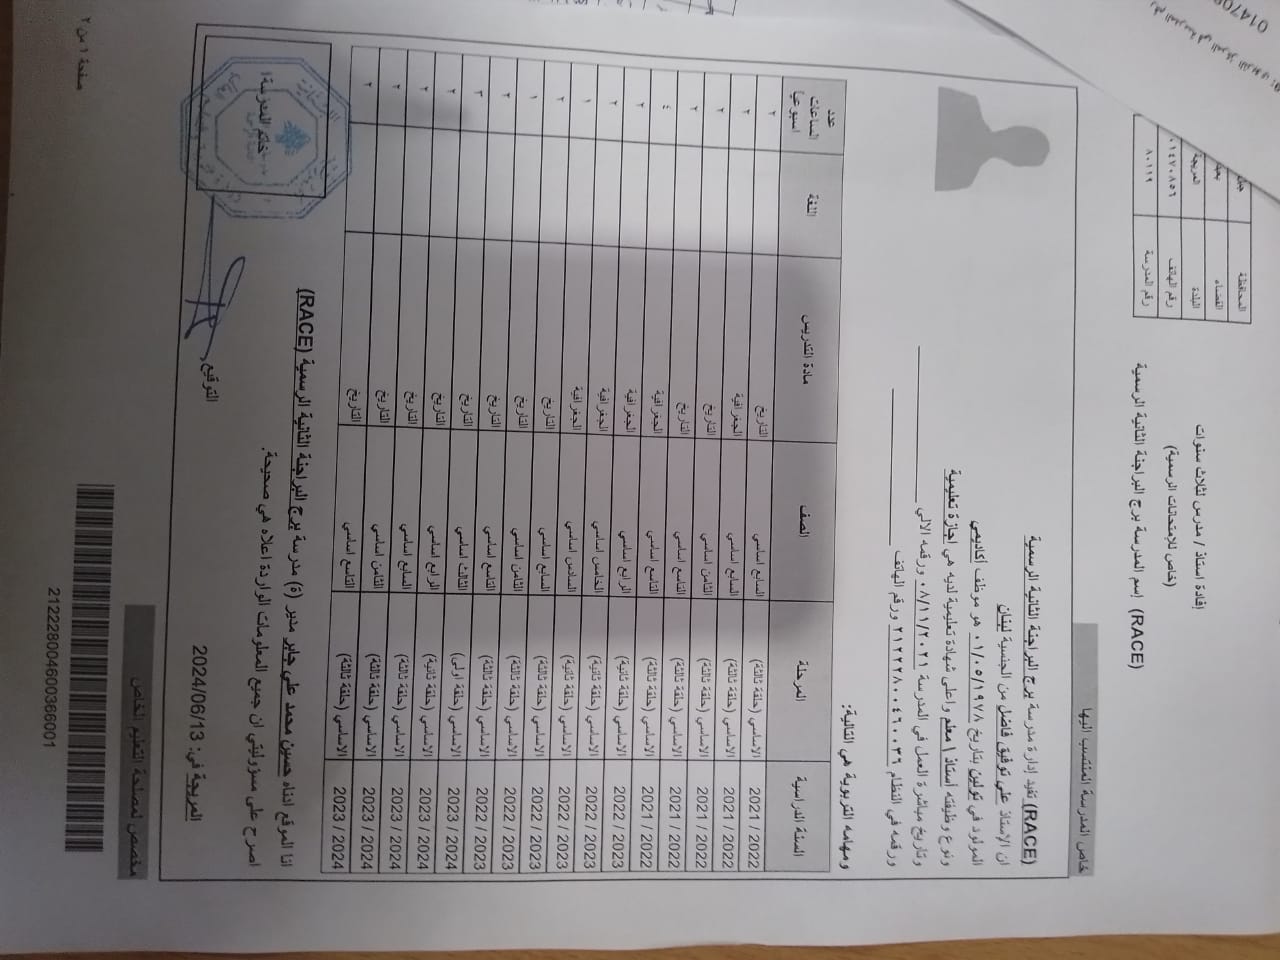 إفادة استاذ / مدرس لثلاث سنوات
(خاص للإمتحانات الرسمية)
إسم المدرسة برج البراجنة الثانية الرسمية (RACE)
المحافظة
القضاء
البلدة المريجة
رقم الهاتف ٠١٤٧٠٨٥٦
رقم المدرسة ٨٠١١٩
خاص المدرسة المنتسب اليها
تفيد إدارة مدرسة برج البراجنة الثانية الرسمية (RACE)
ان الإستاذ علي توفيق فاضل من الجنسية لبنان
المولود في تولين بتاريخ ٠١/٠٥/١٩٧٨ هو موظف أكاديمي
ونوع وظيفته أستاذ \ معلم واعلى شهادة تعليمية لديه هي إجازة تعليمية
وتاريخ مباشرة العمل في المدرسة ٠٨/١١/٢٠٢١ ورقمه الالي
ورقمه في النظام ٢١٢٢٢٨٠٠٤٦٠٠٣٦ ورقم الهاتف
ومهامه التربوية هي التالية:
السنة الدراسية المرحلة الصف مادة التدريس اللغة عدد الساعات اسبوعيا
2021 / 2022 الاساسي (حلقة ثالثة) السابع اساسي التاريخ ٢
2021 / 2022 الاساسي (حلقة ثالثة) السابع اساسي الجغرافية ٢
2021 / 2022 الاساسي (حلقة ثالثة) الثامن اساسي التاريخ ٢
2021 / 2022 الاساسي (حلقة ثالثة) التاسع اساسي التاريخ ٢
2021 / 2022 الاساسي (حلقة ثالثة) التاسع اساسي الجغرافية ٤
2022 / 2023 الاساسي (حلقة ثانية) الرابع اساسي الجغرافية ٢
2022 / 2023 الاساسي (حلقة ثانية) الخامس اساسي الجغرافية ١
2022 / 2023 الاساسي (حلقة ثانية) السادس اساسي الجغرافية ٢
2022 / 2023 الاساسي (حلقة ثالثة) السابع اساسي التاريخ ١
2022 / 2023 الاساسي (حلقة ثالثة) الثامن اساسي التاريخ
2022 / 2023 الاساسي (حلقة ثالثة) التاسع اساسي التاريخ ٣
2023 / 2024 الاساسي (حلقة اولى) الثالث اساسي التاريخ ٢
2023 / 2024 الاساسي (حلقة ثانية) الرابع اساسي التاريخ ٢
2023 / 2024 الاساسي (حلقة ثالثة) السابع اساسي التاريخ ٢
2023 / 2024 الاساسي (حلقة ثالثة) الثامن اساسي التاريخ ٢
2023 / 2024 الاساسي (حلقة ثالثة) التاسع اساسي التاريخ ٢
انا الموقع ادناه حسين محمد علي جابر مدير (ة) مدرسة برج البراجنة الثانية الرسمية (RACE)
اصرح على مسؤوليتي ان جميع المعلومات الواردة اعلاه هي صحيحة.
المريجة في: 2024/06/13
التوقيع
ختم المدرسة
مخصص لمصلحة التعليم الخاص
2122280046003660​01
صفحة ١ من ٢